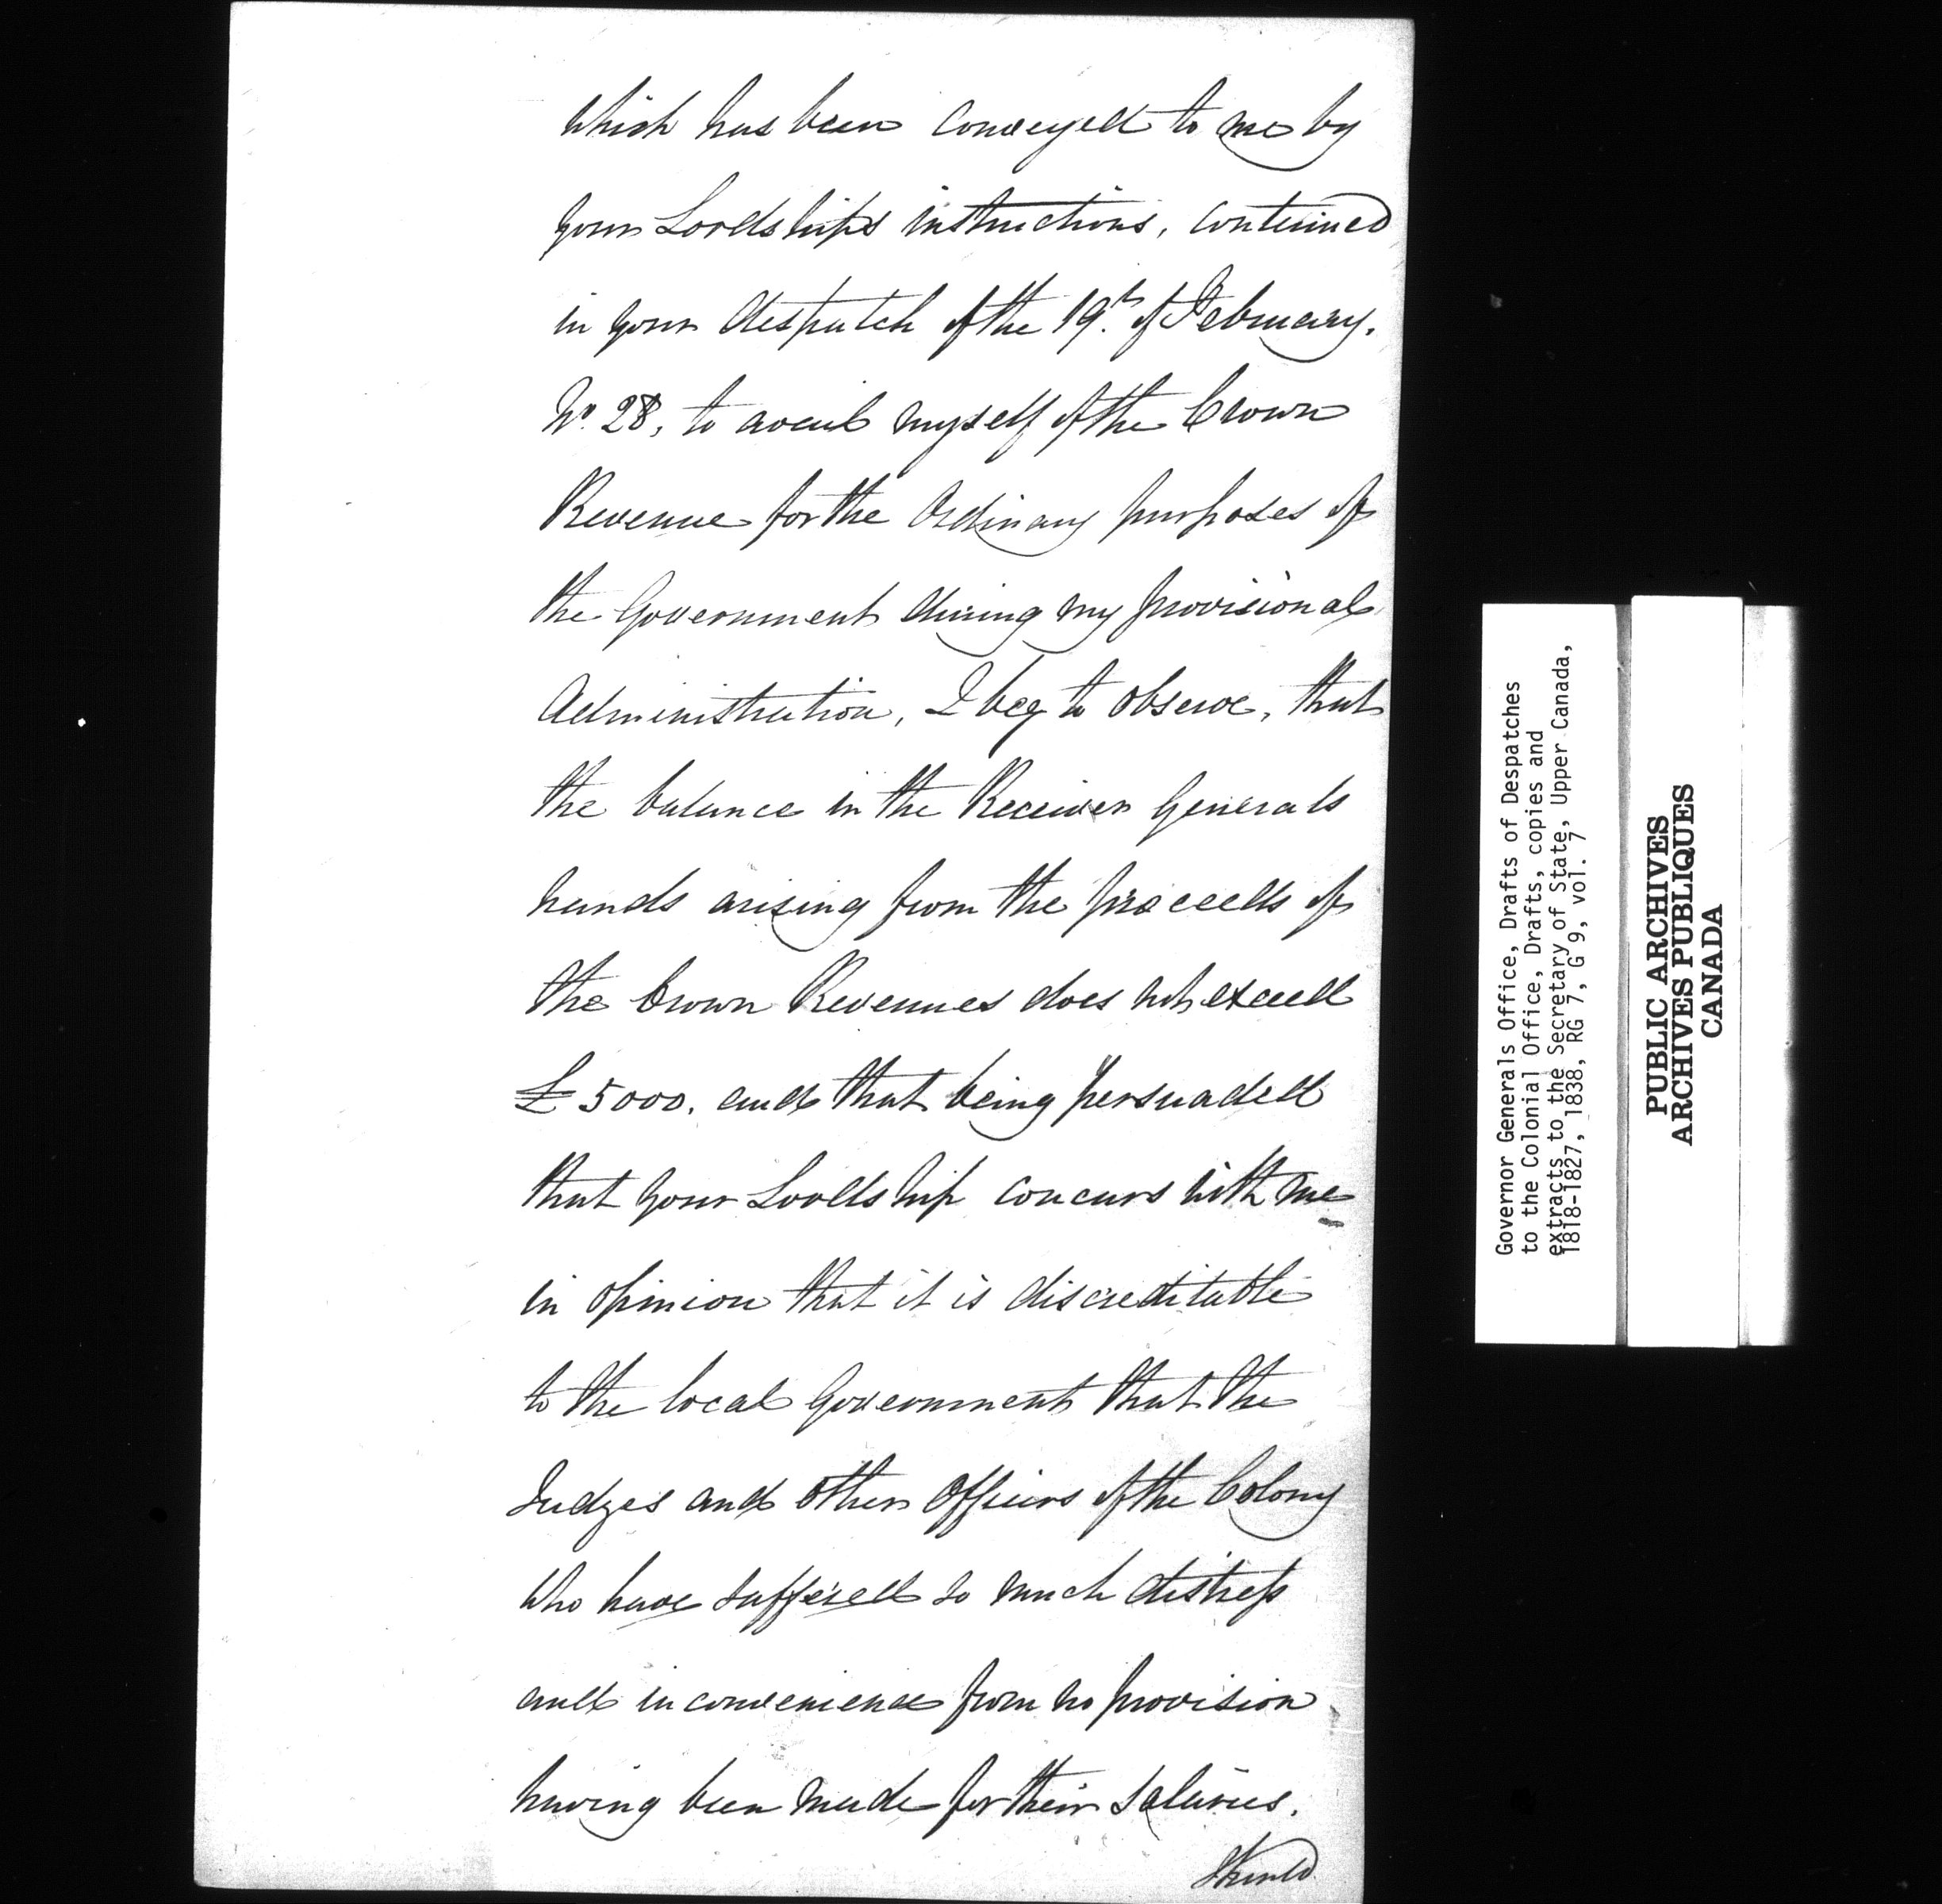 which has been conveyed to me by
your Lordships instructions, contained
in your despatch of the 19th. of February.
No. 28, to avail myself of the Crown
Revenue for the Ordinary purposes of
the Government during my provisional
Administration, I beg to observe, that
the balance in the Receiver Generals
hands arising from the proceeds of
the Crown Revenues does not exceed
£5000. and that being persuaded
that your Lordship concurs with me
in opinion that it is discreditable
to the local Government that the
Judges and other Officers of the Colony
who have suffered so much distress
and inconvenience from no provision
having been made for their salaries.
Should
Governor Generals Office, Drafts of Despatches
to the Colonial Office, Drafts, copies and
extracts to the Secretary of State, Upper Canada,
1818-1827, 1838, RG 7, G 9, vol. 7
PUBLIC ARCHIVES
ARCHIVES PUBLIQUES
CANADA